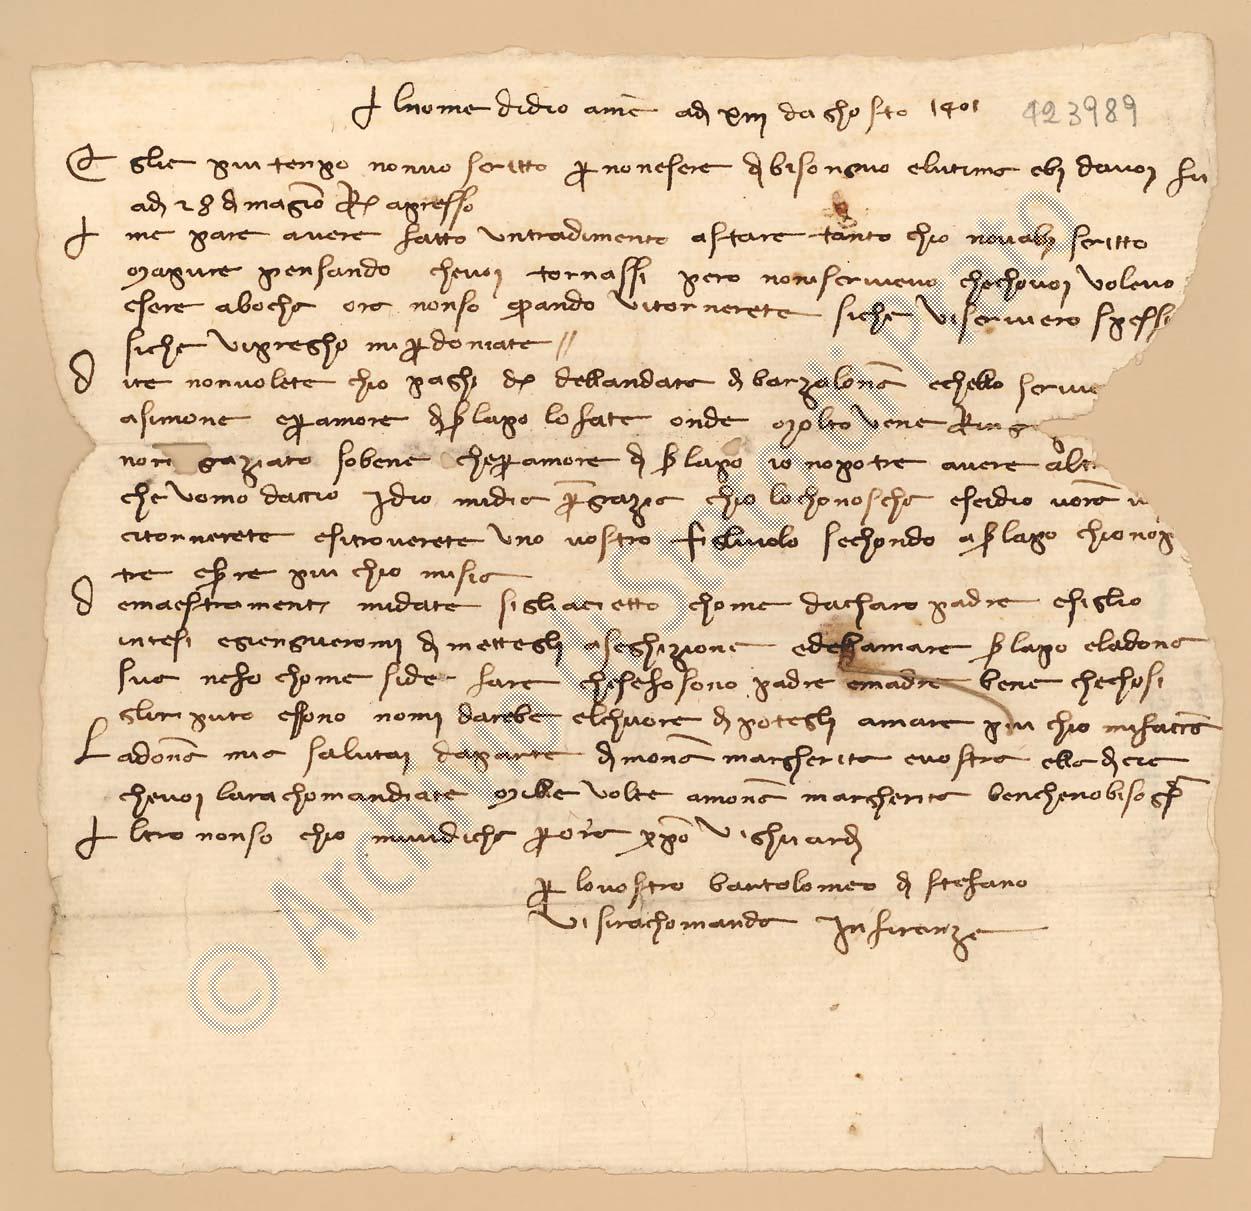 † lnome didio ame adi xiii daghosto 1401 423989
Eglie piu tenpo nonvo scritto per nonesere di bisongnio elutima ebi davoi fu
adi 28 di magio Re apresso
me pare avere fatto untradimento astare tanto chio novabi scritto
mapure pensando chevoi tornassi pero noniscrivevo chechovoi volevo
esere abocha ora nonso quando vitornerete siche viscrivero spessi
siche vipregho mi perdoniate //
Dite nonvolete chio paghi dellandata di barzalona echello scrive
asimone e per amore di ser lapo lo fate onde molto vene Ring
non graziato sobene che per amore di ser lapo io nopotre avere altr
che vomo dacio Idio midia per grazia chio lochonoscha eseidio vorà
citornerete esitroverete uno vostro figluolo sechondo a ser lapo chionop
tre esere piu chio misia
Demaestramenti midate sigliacietto chome dacharo padre efiglio
intesi egiengneromi di mettegli aseghizione edellamare ser lapo eladona
sua neso chome side fare chesefosono padre emadre bene chechosi
gliriputo essono nomi darebe elchuore di potegli amare piu chio mifaccia
Ladona mia salutai daparte di mona margherita evostra ella dicie
chevoi larachomandiate mille volte amona margherita benchenobisogni
Altro nonso chio mividicha per ora xpo vighuardi
per lovostro bartolomeo di stefano
visirachomanda In firenze
© Archivio di Stato di Prato